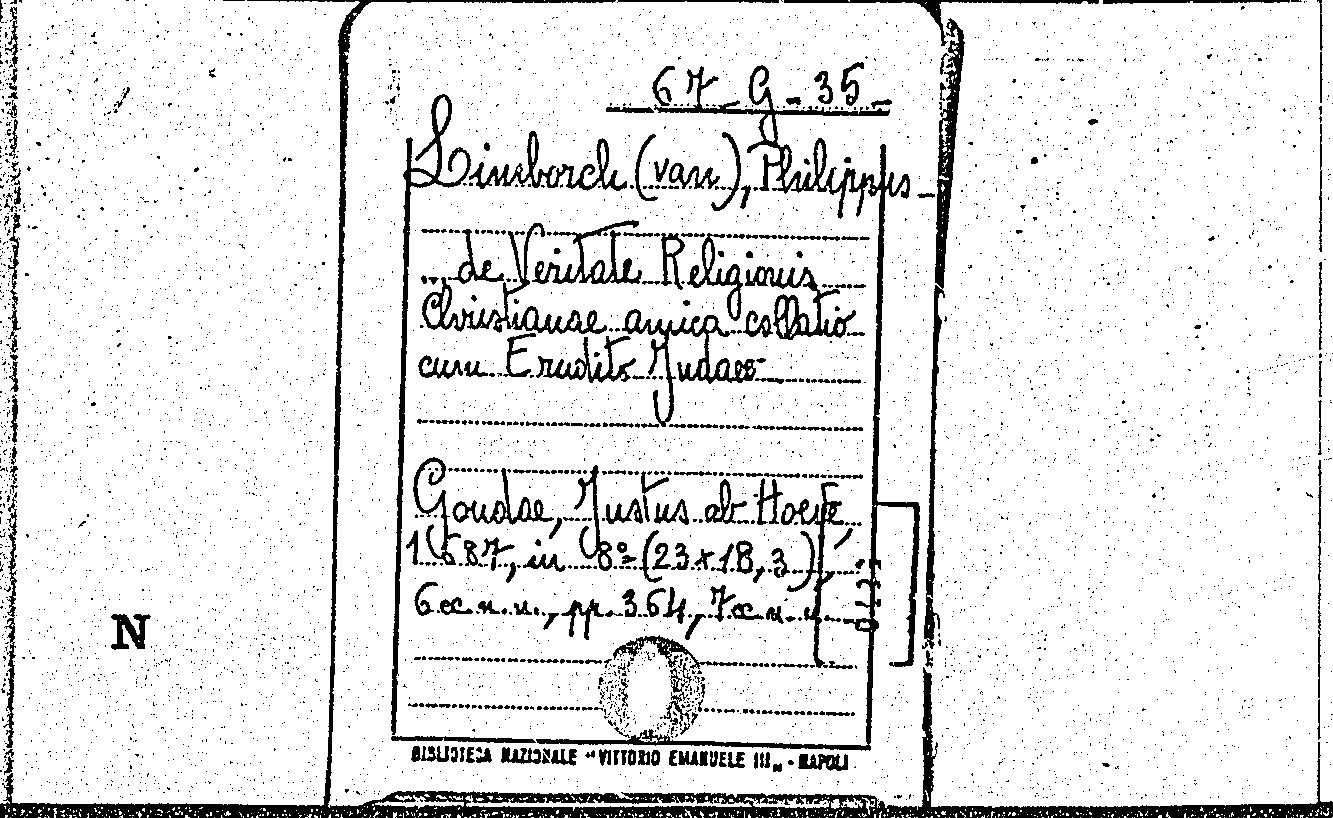 67_G-35_
Limborch (van), Philippus_
... de Veritate Religionis
Christianae amica collatio
cum Erudito Judaeo
Goudae, Justus ab Hoeve,
1687, in 8º (23x18,3),
6 cc. n. n., pp. 364, 7 cc. n. n.
N
BIBLIOTECA NAZIONALE "VITTORIO EMANUELE III„ - NAPOLI